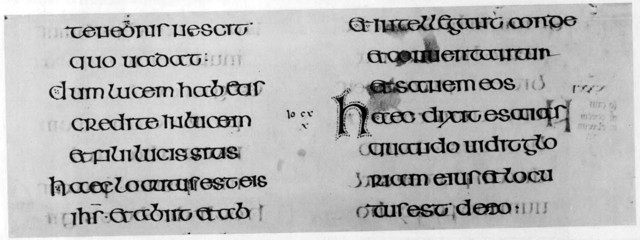 tenebris nescit
quo uadat:
dum lucem habetis
credite in lucem
et filii lucis sitis
haec locutus est eis
ihs̄ et abiit et ab
et intellegant corde
et conuertantur
et sanem eos
io cx
v
haec dixit esaias
quando uidit glo
riam eius et locu
tus est de eo·